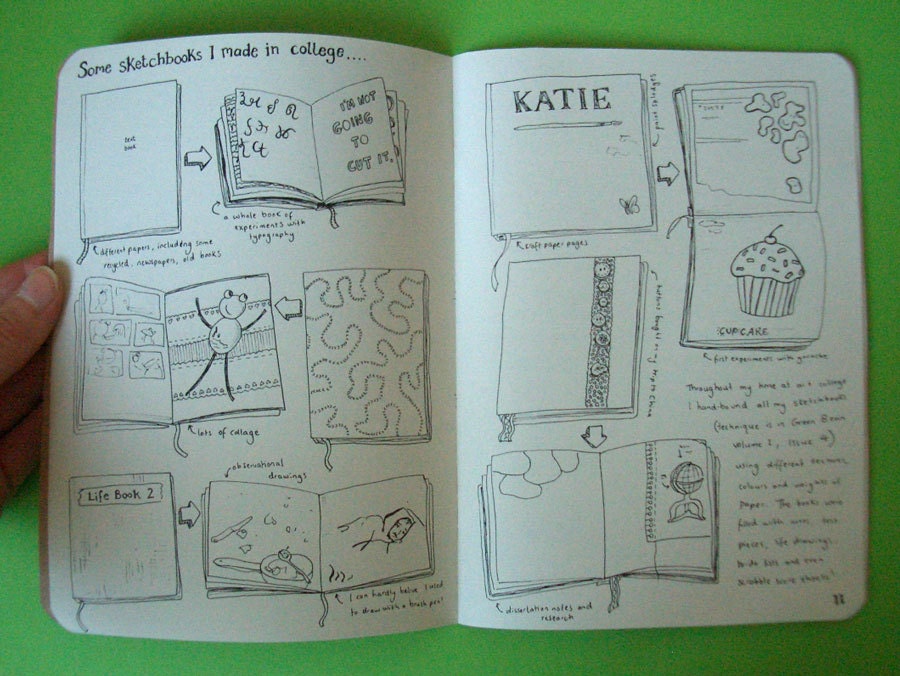 Some sketchbooks I made in college....
text
book
I'M NOT
GOING
TO
CUT IT.
a whole book of
experiments with
typography
different papers, including some
recycled, newspapers, old books
lots of collage
Life Book 2
observational
drawings
I can hardly belive I used
to draw with a brush pen!
KATIE
craft paper pages
CUPCAKE
first experiments with gouache
dissertation notes and
research
Throughout my time at art college
I hand-bound all my sketchbooks
(technique is in Green Bean
volume 1, issue 4)
using different textures,
colours and weights of
paper. The books were
filled with
life drawings,
to do lists and even